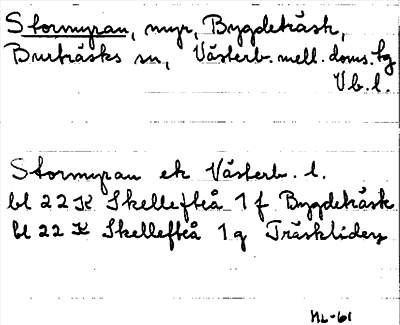 Stormyran, myr, Bygdeträsk,
Burträsks sn, Västerb. mell. doms. tg
Vb. l.
Stormyran ek Västerb. l.
bl 22 K Skellefteå 1 f Bygdeträsk
bl 22 K Skellefteå 1 g Träskliden
NL-61